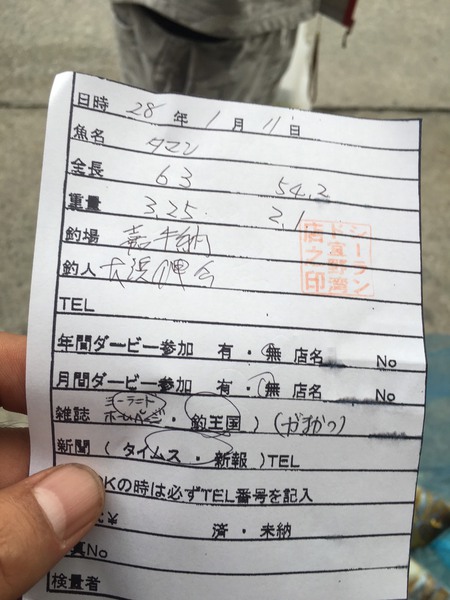 日時 28 年 1 月 11 日
魚名 タマン
全長 63 54.2
重量 3.25 2.1
釣場 嘉手納
釣人
シーランド宜野湾店之印
TEL
年間ダービー参加 有・無 店名 No
月間ダービー参加 有・無 店名 No
シーランド
雑誌 ホームページ・釣王国 ) (がまかつ)
新聞 ( タイムス ・ 新報 ) TEL
Kの時は必ずTEL番号を記入
¥ 済・未納
No
検量者